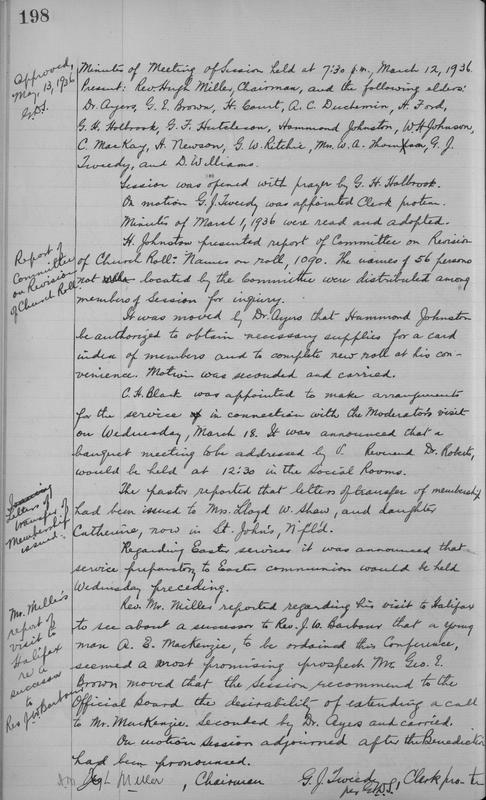 198
Approved,
May, 13, 1936
G.D.S.
Minutes of Meeting of Session held at 7:30 p.m., March 12, 1936.
Present: Rev. Hugh Miller, Chairman, and the following elders:
Dr. Ayers, G. E. Brown, H. Court, A. C. Duchemin, H. Ford,
G. H. Holbrook, G. F. Hutcheson, Hammond Johnston, W. H. Johnson,
C. MacKay, H. Newson, G. W. Ritchie, W. A. Thomson, G. J.
Tweedy, and D. Williams.
Session was opened with prayer by G. H. Holbrook.
On motion G. J. Tweedy was appointed Clerk protem.
Minutes of March 1, 1936 were read and adopted.
Report of
Committee
on Revision
of Church Roll
H. Johnston presented report of Committee on Revision
of Church Roll. Names on roll, 1090. The names of 56 persons
not located by the Committee were distributed among
members of Session for inquiry.
It was moved by Dr. Ayers that Hammond Johnston
be authorized to obtain necessary supplies for a card
index of members and to complete new roll at his con-
venience. Motion was seconded and carried.
C. H. Black was appointed to make arrangements
for the service in connection with the Moderator's visit
on Wednesday, March 18. It was announced that a
banquet meeting to be addressed by Reverend Dr. Roberts,
would be held at 12:30 in the Social Rooms.
Letters of
transfer of
Membership
issued.
The pastor reported that letters of transfer of membership
had been issued to Mrs. Lloyd W. Shaw, and daughter
Catherine, now in St. John's, Nfld.
Regarding Easter services it was announced that
service preparatory to Easter communion would be held
Wednesday preceding.
Mr. Miller's
report of
visit to
Halifax
re a
successor
to
Rev J. W. Barbour
Rev. Mr. Miller reported regarding his visit to Halifax
to see about a successor to Rev. J. W. Barbour that a young
man A. E. MacKenzie, to be ordained this Conference,
seemed a most promising prospect. Mr. Geo. E.
Brown moved that the Session recommend to the
Official Board the desirability of extending a call
to Mr. MacKenzie. Seconded by Dr. Ayers and carried.
On motion session adjourned after the Benediction
had been pronounced.
Miller, Chairman G. J. Tweedy, Clerk pro-tem
per G.D.S.